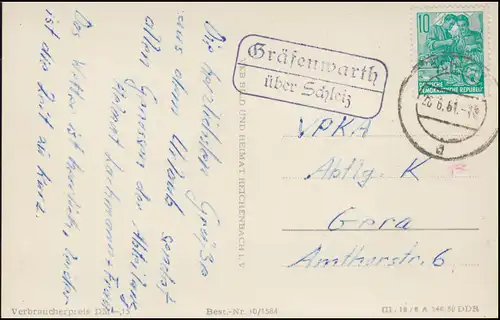 Die herzlichsten Grüße
aus dem Urlaub sendet
allen Genossen der Abteilung
Das Wetter ist herrlich, leider
ist die Zeit zu kurz.
VEB BILD UND HEIMAT REICHENBACH I. V.
Gräfenwarth
über Schleiz
10
DEUTSCHE
DEMOKRATISCHE REPUBLIK
6.61.-18
a
VPKA
Abtlg. K
Gera
Amthorstr. 6
Verbraucherpreis DM -,15
Best.-Nr. 10/1584
DDR